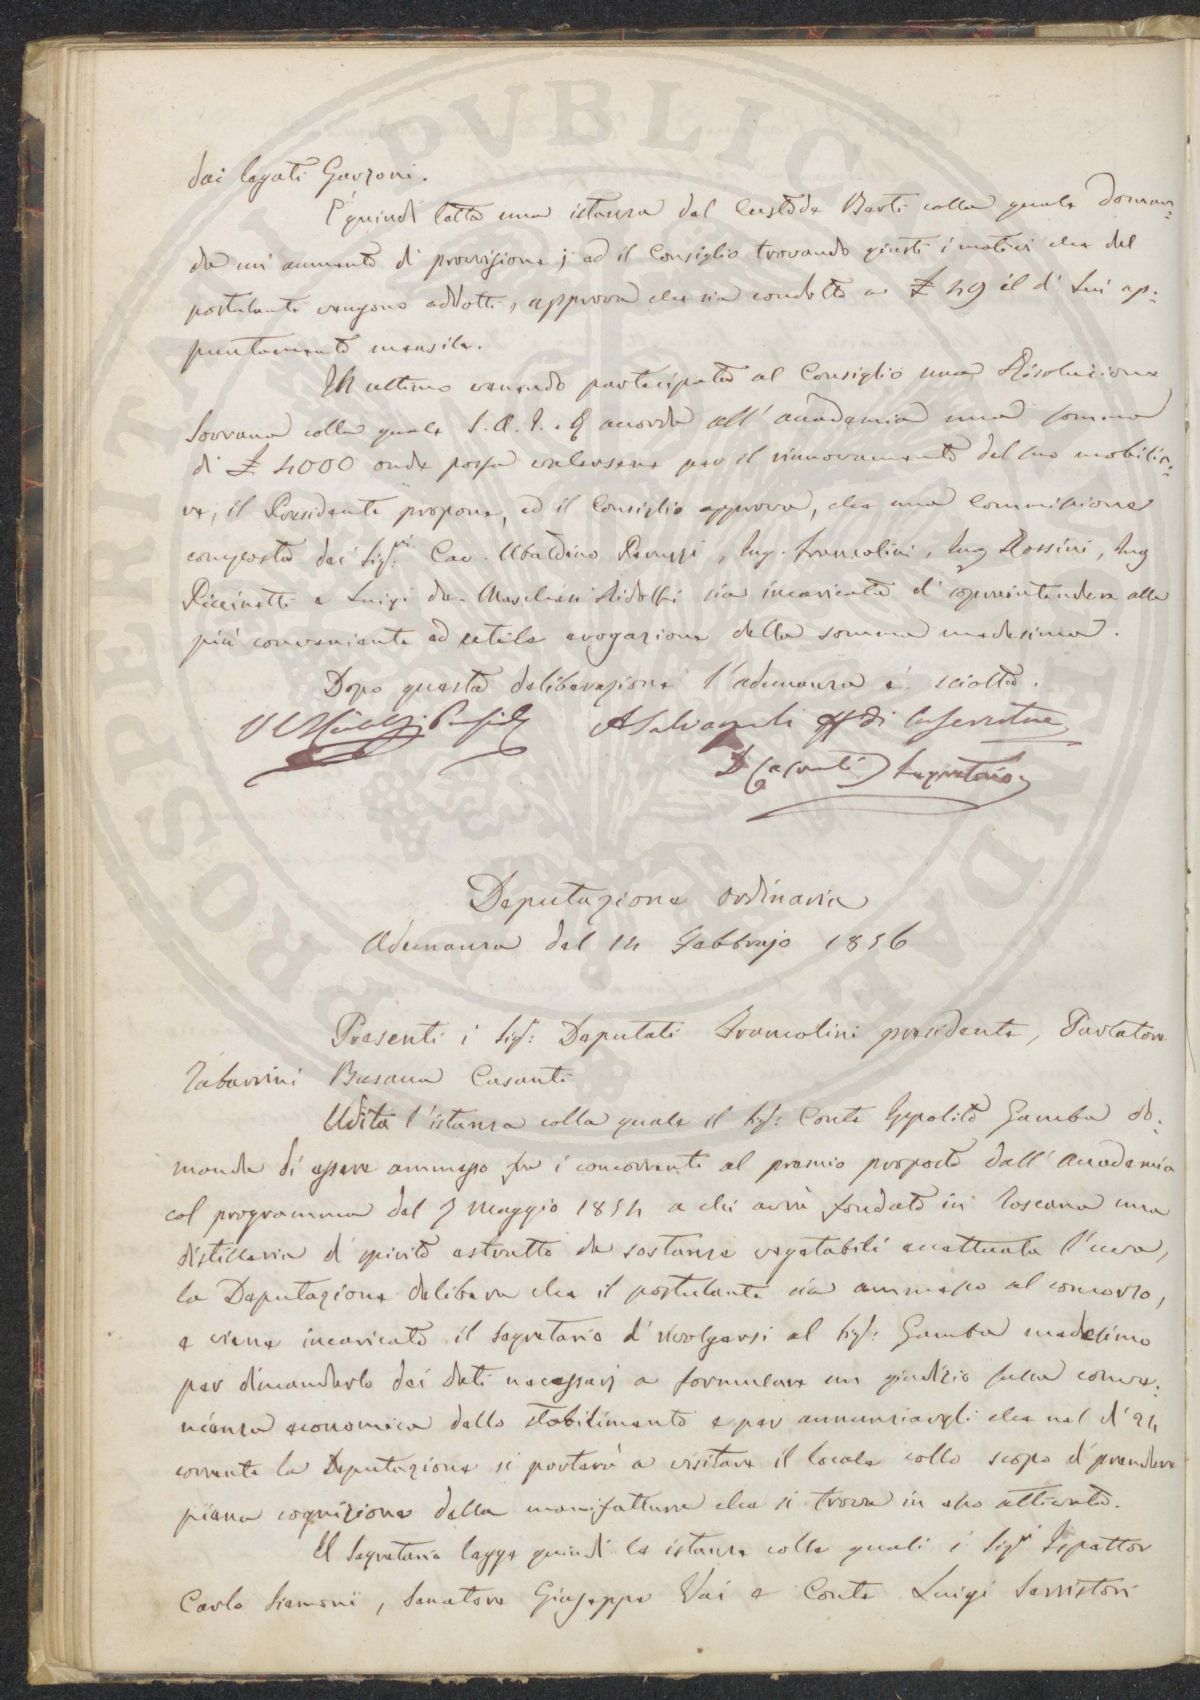 dai legati Garzoni.
È quindi letta una istanza del Custode Berti colla quale doman=
da un' aumento di provvisione; ed il Consiglio trovando giusti i motivi che dal
postulante vengono addotti, approva che sia condotto a £ 49 il di Lui ap=
puntamento mensile.
In ultimo venendo partecipata al Consiglio una Risoluzione
Sovrana colla quale S. A. I. e R accorda all' accademia una somma
di £ 4000 onde possa valersene per il rinnovamento del suo mobilia=
re, il Presidente propone, ed il Consiglio approva, che una Commissione
composta dai Sigri: Cav. Ubaldino Peruzzi, Ing. Francolini, Ing Rossini, Ing
Piccinetti e Luigi de Marchesi Ridolfi sia incaricata di soprintendere alla
più conveniente ed utile erogazione della somma medesima.
Dopo questa deliberazione l'adunanza è sciolta.
A Salvagnoli ff di Conservatore
D Casanti Segretario
Deputazione ordinaria
Adunanza del 14 Febbrajo 1856
Presenti i Sigri: Deputati Francolini presidente, Parlatore
Tabarrini Busacca Casanti
Udita l'istanza colla quale il Sigr: Conte Ippolito Gamba do=
manda di essere ammesso fra i concorrenti al premio proposto dall' Accademia
col programma del 7 Maggio 1854 a chi avrà fondato in Toscana una
distilleria di spirito estratto da sostanze vegetabili eccettuata l'uva,
la Deputazione delibera che il postulante sia ammesso al concorso,
e viene incaricato il Segretario di rivolgersi al Sigr: Gamba medesimo
per dimandarlo dei dati necessarj a formulare un giudizio sulla conve=
nienza economica dello stabilimento e per annunziargli che nel dì 24
corrente la Deputazione si porterà a visitare il locale collo scopo di prendere
piena cognizione della manifattura che si trova in esso attivata.
Il Segretario legge quindi le istanze colle quali i Sigri Ispettor
Carlo Siemoni, Senatore Giuseppe Vai e Conte Luigi Serristori